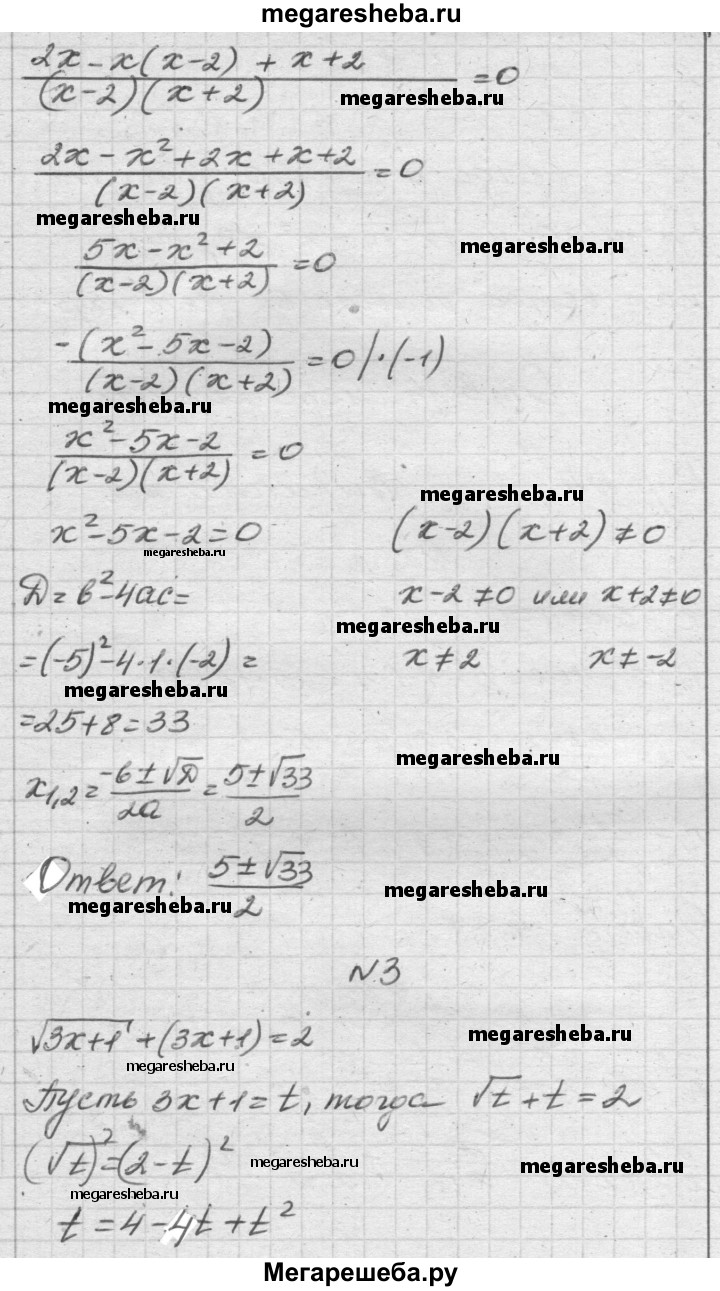 megaresheba.ru
(2x - x(x-2) + x+2)/((x-2)(x+2)) = 0
megaresheba.ru
(2x - x² + 2x + x + 2)/((x-2)(x+2)) = 0
megaresheba.ru
(5x - x² + 2)/((x-2)(x+2)) = 0
megaresheba.ru
-(x² - 5x - 2)/((x-2)(x+2)) = 0 | · (-1)
megaresheba.ru
(x² - 5x - 2)/((x-2)(x+2)) = 0
megaresheba.ru
x² - 5x - 2 = 0 (x-2)(x+2) ≠ 0
megaresheba.ru
Д = b² - 4ac = x-2 ≠ 0 или x+2 ≠ 0
megaresheba.ru
= (-5)² - 4·1·(-2) = x ≠ 2 x ≠ -2
megaresheba.ru
= 25 + 8 = 33
megaresheba.ru
x₁,₂ = (-b ± √Д)/2a = (5 ± √33)/2
Ответ: (5 ± √33)/2
megaresheba.ru
megaresheba.ru
N3
√(3x+1) + (3x+1) = 2
megaresheba.ru
megaresheba.ru
Пусть 3x+1 = t, тогда √t + t = 2
(√t)² = (2-t)²
megaresheba.ru
megaresheba.ru
megaresheba.ru
t = 4 - 4t + t²
Мегарешеба.ру